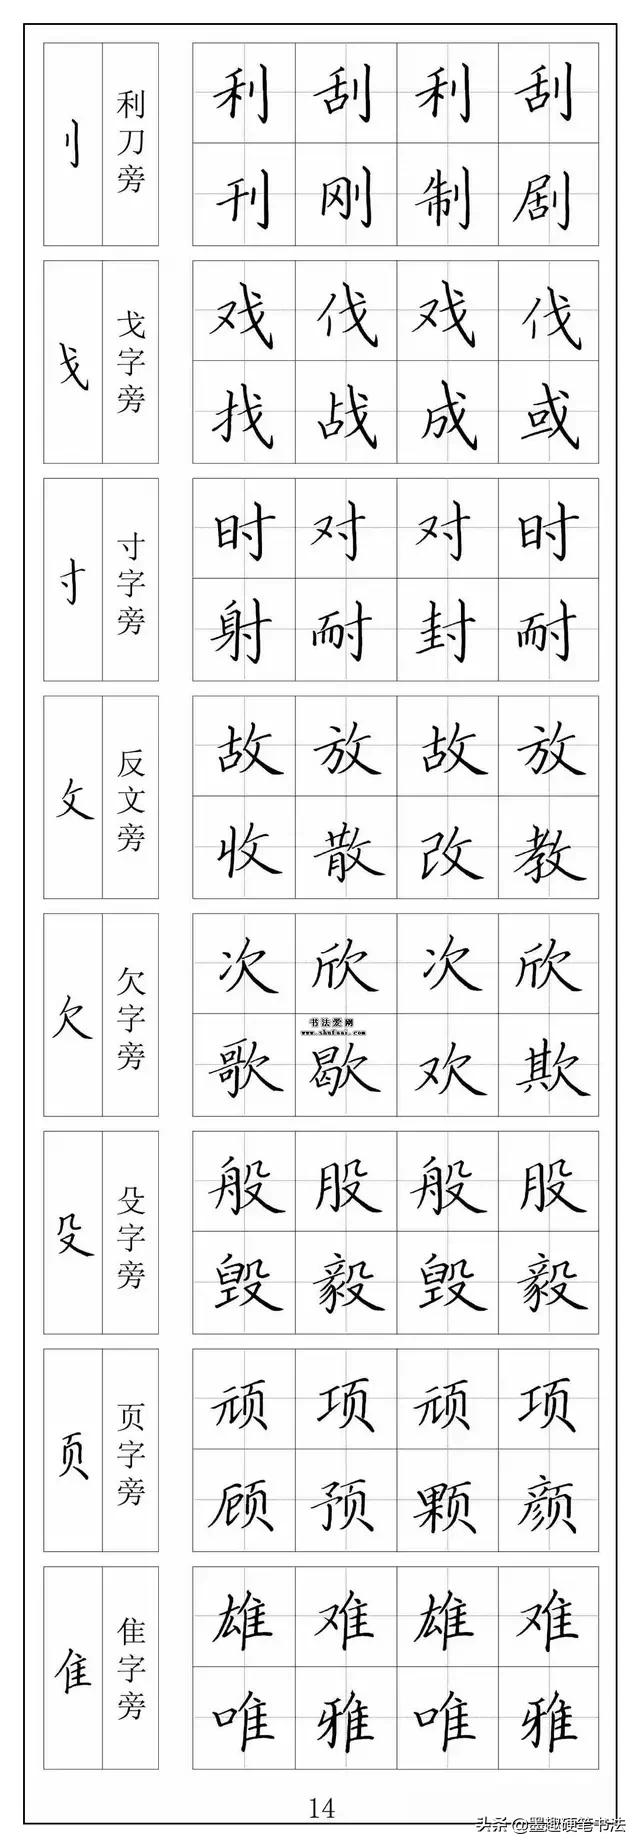 刂 利刀旁
利 刮 利 刮
刊 刚 制 剧
戈 戈字旁
戏 伐 戏 伐
找 战 成 或
寸 寸字旁
时 对 对 时
射 耐 封 耐
攵 反文旁
故 放 故 放
收 散 改 教
欠 欠字旁
次 欣 次 欣
书法爱网
歌 歇 欢 欺
殳 殳字旁
般 股 般 股
毁 毅 毁 毅
页 页字旁
顽 项 顽 项
顾 预 颗 颜
隹 隹字旁
雄 难 雄 难
唯 雅 唯 雅
14
头条@墨趣硬笔书法